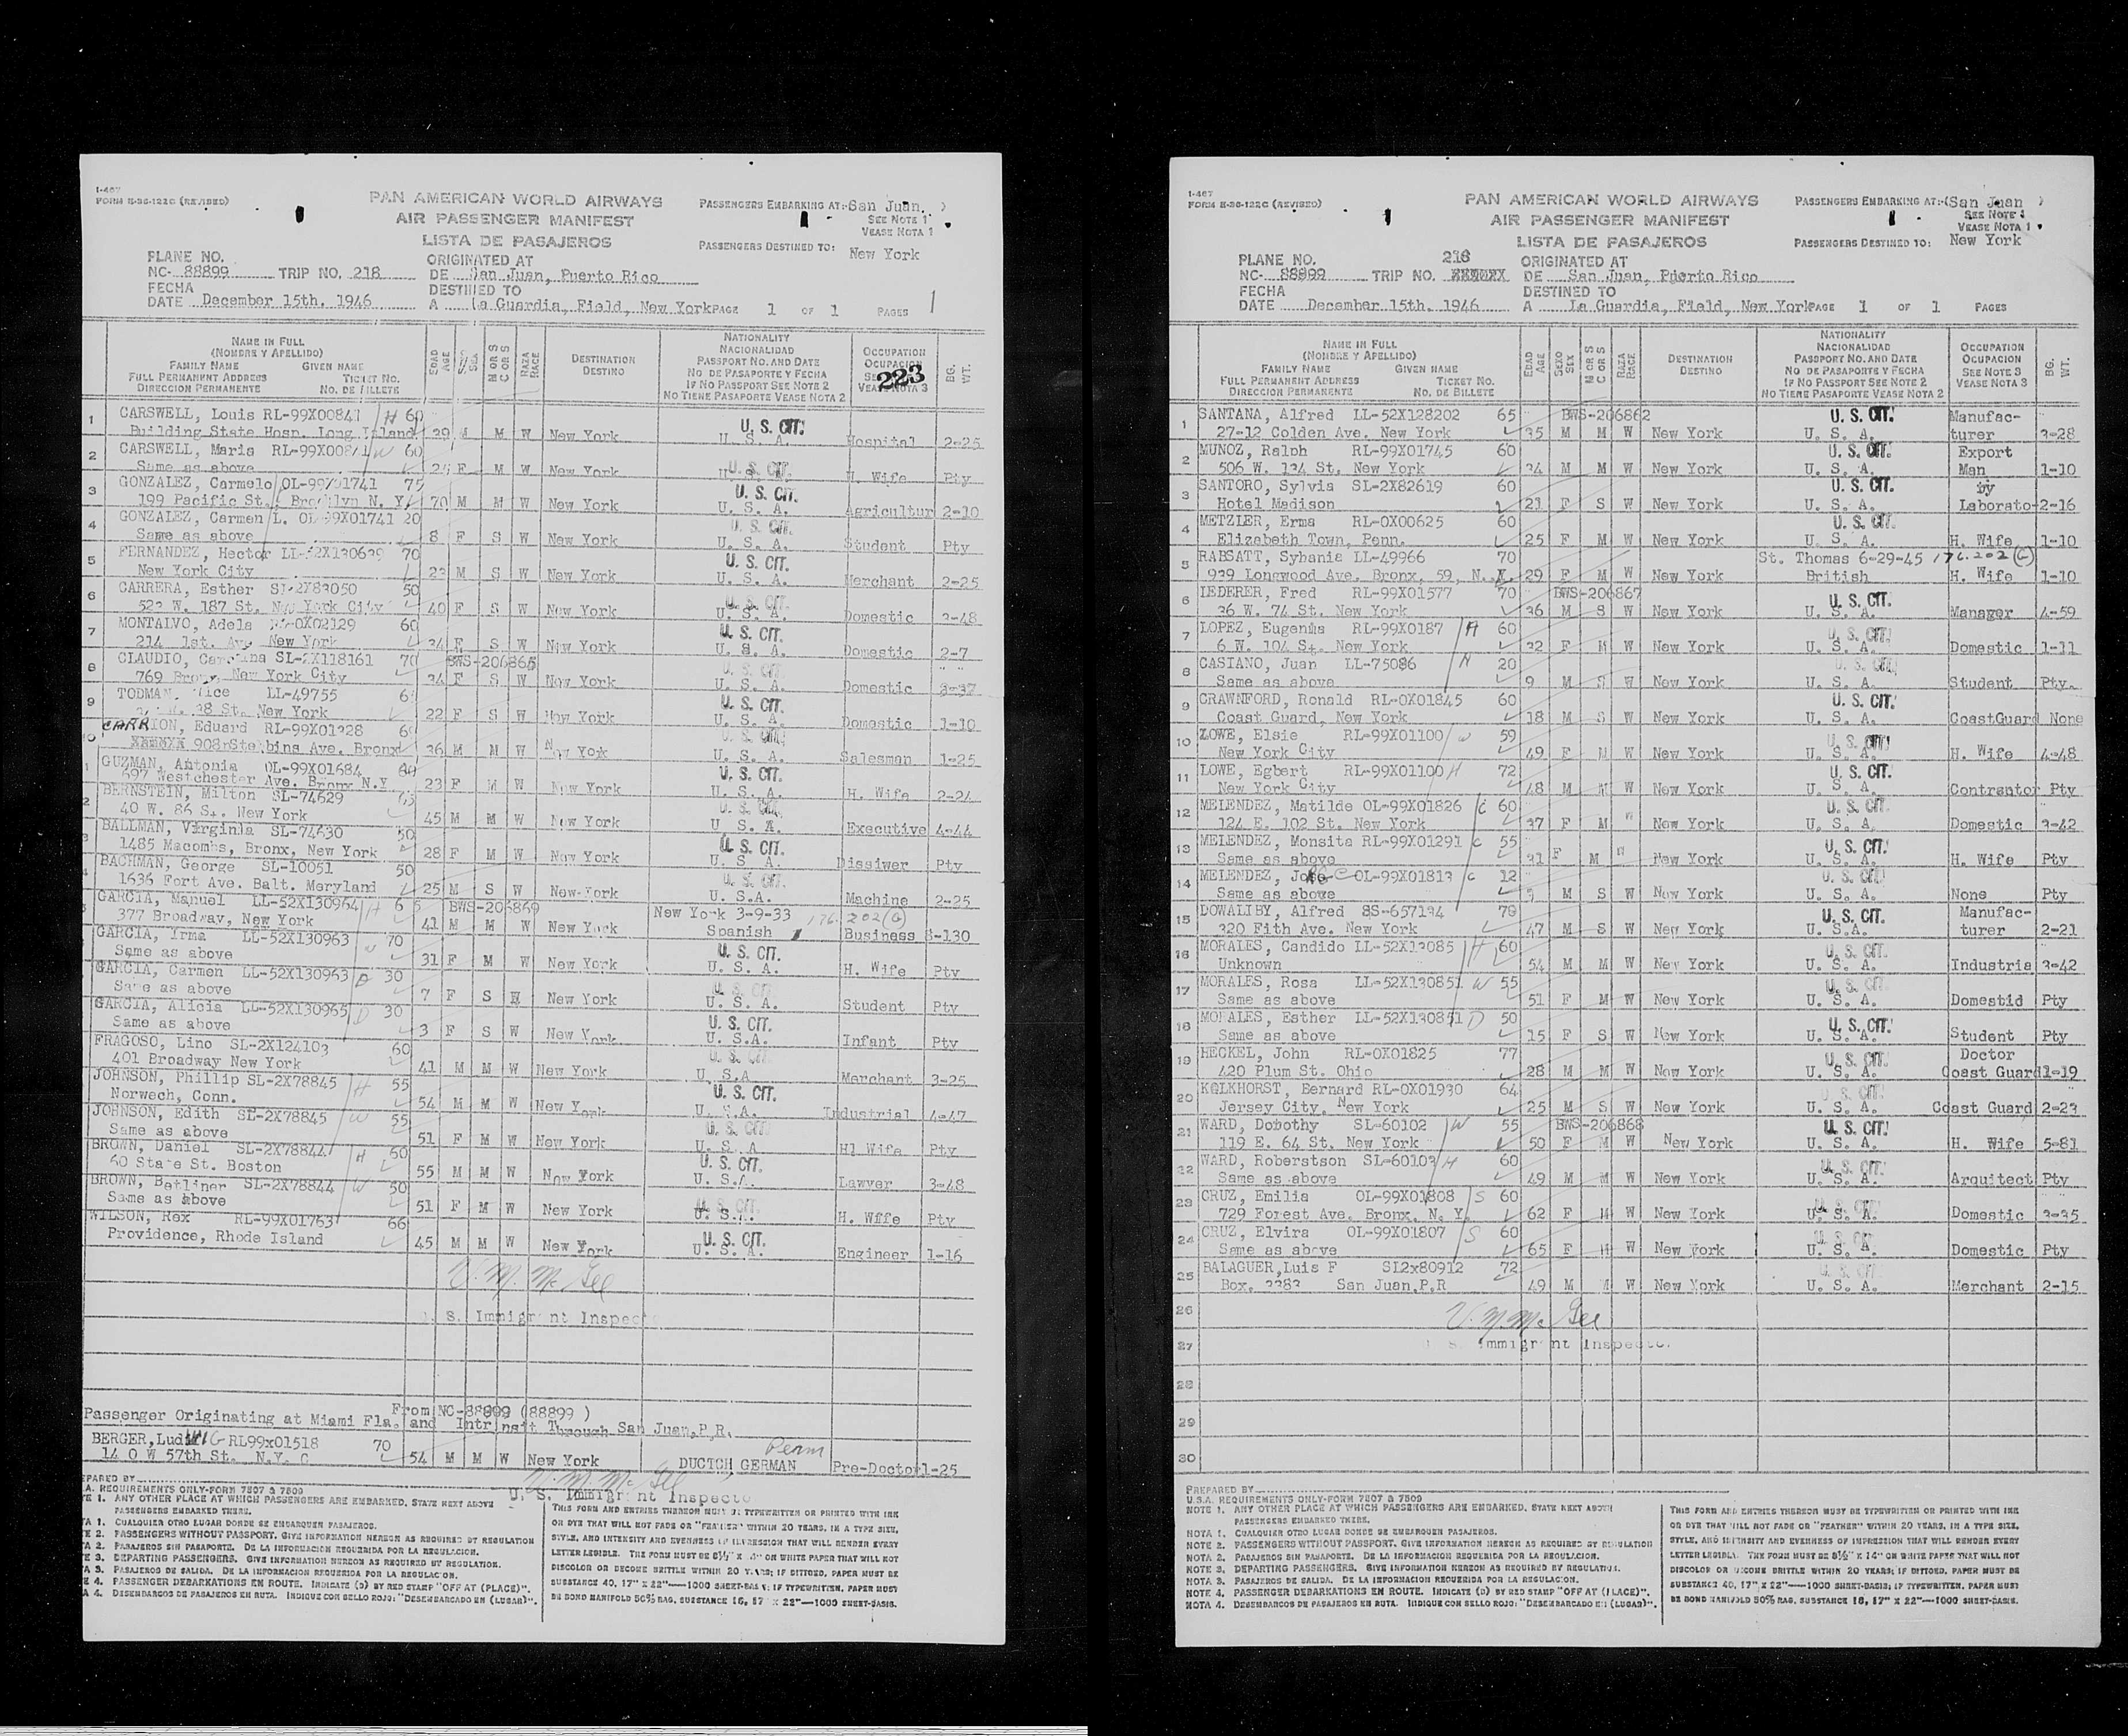 I-467
FORM H-36-122C (REVISED)
PAN AMERICAN WORLD AIRWAYS
AIR PASSENGER MANIFEST
LISTA DE PASAJEROS
PASSENGERS EMBARKING AT:-San Juan,
SEE NOTE 1
VEASE NOTA 1
PASSENGERS DESTINED TO: New York
PLANE NO.
NC- 88899 TRIP NO. 218
ORIGINATED AT
DE San Juan, Puerto Rico
FECHA
DATE December 15th. 1946
DESTINED TO
A La Guardia, Field, New York PAGE 1 OF 1 PAGES 1
NAME IN FULL
(NOMBRE Y APELLIDO)
FAMILY NAME GIVEN NAME
FULL PERMANENT ADDRESS TICKET NO.
DIRECCION PERMANENTE NO. DE BILLETE
EDAD AGE
SEXO SEX
M OR S
C OR S
RAZA RACE
DESTINATION
DESTINO
NATIONALITY
NACIONALIDAD
PASSPORT NO. AND DATE
NO DE PASAPORTE Y FECHA
IF NO PASSPORT SEE NOTE 2
NO TIENE PASAPORTE VEASE NOTA 2
OCCUPATION
OCUPACION
SEE NOTE 3
VEASE NOTA 3
223
BG. WT.
1 CARSWELL, Louis RL-99X00841 H 60 U. S. CIT.
Building State Hosp. Long Island 39 M M W New York U. S. A. Hospital 2-25
2 CARSWELL, Maria RL-99X00841 W 60 U. S. CIT.
Same as above F M W New York U. S. A. H. Wife Pty
3 GONZALEZ, Carmelo OL-99X01741 75 U. S. CIT.
199 Pacific St. Brooklyn N. Y. 70 M M W New York U. S. A. Agricultur 2-10
4 GONZALEZ, Carmen L. OL-99X01741 20 U. S. CIT.
Same as above 8 F S W New York U. S. A. Student Pty
5 FERNANDEZ, Hector LL-52X130639 70 U. S. CIT.
New York City 23 M S W New York U. S. A. Merchant 2-25
6 CARRERA, Esther SL-2X83050 50 U. S. CIT.
523 W. 187 St. New York City 40 F S W New York U. S. A. Domestic 3-48
7 MONTALVO, Adela RL-0X02129 60 U. S. CIT.
214 1st. Ave New York 34 F S W New York U. S. A. Domestic 2-7
8 CLAUDIO, Carolina SL-2X118161 70 BWS-206865 U. S. CIT.
769 New York City 34 F S W New York U. S. A. Domestic 3-37
9 TODMAN, LL-49755 U. S. CIT.
St. New York 22 F S W New York U. S. A. Domestic 1-10
10 CARRION, Eduard RL-99X01328 U. S. CIT.
XXXXXX 908 Stebbins Ave. Bronx 36 M M W New York U. S. A. Salesman 1-25
1 GUZMAN, Antonia OL-99X01684 U. S. CIT.
697 Westchester Ave. Bronx N.Y 23 F M W New York U. S. A. H. Wife 2-24
2 BERNSTEIN, Milton SL-74629 65 U. S. CIT.
40 W. 86 St. New York 45 M M W New York U. S. A. Executive 4-44
3 BALLMAN, Virginia SL-74630 50 U. S. CIT.
1485 Macombs, Bronx, New York 28 F M W New York U. S. A. Dissiwer Pty
4 BACHMAN, George SL-10051 50 U. S. CIT.
1636 Fort Ave. Balt. Maryland 25 M S W New-York U.S.A. Machine 2-25
5 GARCIA, Manuel LL-52X130964 H 65 BWS-206869 New York 3-9-33 176.202(G)
377 Broadway, New York 41 M M W New York Spanish Business 8-130
GARCIA, Yrma LL-52X130963 W 70 U. S. CIT.
Same as above 31 F M W New York U. S. A. H. Wife Pty
GARCIA, Carmen LL-52X130963 D 30 U. S. CIT.
Same as above 7 F S W New York U. S. A. Student Pty
GARCIA, Alicia LL-52X130965 D 30 U. S. CIT.
Same as above 3 F S W New York U. S.A. Infant Pty
FRAGOSO, Lino SL-2X124103 60 U. S. CIT.
401 Broadway New York 41 M M W New York U. S.A Merchant 3-25
JOHNSON, Phillip SL-2X78845 H 55 U. S. CIT.
Norwech, Conn. 54 M M W New York U. S.A. Industrial 4-47
JOHNSON, Edith SL-2X78845 W 55 U. S. CIT.
Same as above 51 F M W New York U. S. A H1 Wife Pty
BROWN, Daniel SL-2X78844 H 60 U. S. CIT.
60 State St. Boston 55 M M W New York U. S.A. Lawyer 3-48
BROWN, Betliner SL-2X78844 W 50 U. S. CIT.
Same as above 51 F M W New York U. S.A. H. Wffe Pty
WILSON, Rex RL-99X01763 66 U. S. CIT.
Providence, Rhode Island 45 M M W New York U. S. A. Engineer 1-16
V. M. McGee
U. S. Immigrant Inspector
From NC-88899 (88899 )
Passenger Originating at Miami Fla. and Intransit Through San Juan,P.R.
BERGER,LudWIG RL99x01518 70 Perm
14 0 W 57th St. N.Y. C. 54 M M W New York DUCTCH GERMAN Pre-Doctor 1-25
V. M. McGee
U. S. Immigrant Inspector
PREPARED BY
U.S.A. REQUIREMENTS ONLY-FORM 7507 & 7509
NOTE 1. ANY OTHER PLACE AT WHICH PASSENGERS ARE EMBARKED. STATE NEXT ABOVE
PASSENGERS EMBARKED THERE.
NOTA 1. CUALQUIER OTRO LUGAR DONDE SE EMBARQUEN PASAJEROS.
NOTE 2. PASSENGERS WITHOUT PASSPORT. GIVE INFORMATION HEREON AS REQUIRED BY REGULATION
NOTA 2. PASAJEROS SIN PASAPORTE. DE LA INFORMACION REQUERIDA POR LA REGULACION.
NOTE 3. DEPARTING PASSENGERS. GIVE INFORMATION HEREON AS REQUIRED BY REGULATION.
NOTA 3. PASAJEROS DE SALIDA. DE LA INFORMACION REQUERIDA POR LA REGULACION.
NOTE 4. PASSENGER DEBARKATIONS EN ROUTE. INDICATE (D) BY RED STAMP "OFF AT (PLACE)".
NOTA 4. DESEMBARCOS DE PASAJEROS EN RUTA. INDIQUE CON SELLO ROJO: "DESEMBARCADO EN (LUGAR)".
THIS FORM AND ENTRIES THEREON MUST BE TYPEWRITTEN OR PRINTED WITH INK
OR DYE THAT WILL NOT FADE OR "FEATHER" WITHIN 20 YEARS, IN A TYPE SIZE,
STYLE, AND INTENSITY AND EVENNESS OF IMPRESSION THAT WILL RENDER EVERY
LETTER LEGIBLE. THE FORM MUST BE 8½" X 14" ON WHITE PAPER THAT WILL NOT
DISCOLOR OR BECOME BRITTLE WITHIN 20 YEARS; IF DITTOED, PAPER MUST BE
SUBSTANCE 40, 17" X 22"—1000 SHEET-BASIS; IF TYPEWRITTEN, PAPER MUST
BE BOND MANIFOLD 50% RAG, SUBSTANCE 16, 17" X 22"—1000 SHEET-BASIS.
I-467
FORM H-36-122C (REVISED)
PAN AMERICAN WORLD AIRWAYS
AIR PASSENGER MANIFEST
LISTA DE PASAJEROS
PASSENGERS EMBARKING AT:-(San Juan )
SEE NOTE 1
VEASE NOTA 1
PASSENGERS DESTINED TO: New York
PLANE NO. 218
NC- 88899 TRIP NO. XXXXXX
ORIGINATED AT
DE San Juan, Puerto Rico
FECHA
DATE December 15th. 1946
DESTINED TO
A La Guardia, Field, New York PAGE 1 OF 1 PAGES
NAME IN FULL
(NOMBRE Y APELLIDO)
FAMILY NAME GIVEN NAME
FULL PERMANENT ADDRESS TICKET NO.
DIRECCION PERMANENTE NO. DE BILLETE
EDAD AGE
SEXO SEX
M OR S
C OR S
RAZA RACE
DESTINATION
DESTINO
NATIONALITY
NACIONALIDAD
PASSPORT NO. AND DATE
NO DE PASAPORTE Y FECHA
IF NO PASSPORT SEE NOTE 2
NO TIENE PASAPORTE VEASE NOTA 2
OCCUPATION
OCUPACION
SEE NOTE 3
VEASE NOTA 3
BG. WT.
1 SANTANA, Alfred LL-52X128202 65 BWS-206862 U. S. CIT. Manufac-
27-12 Colden Ave. New York 35 M M W New York U. S. A. turer 3-28
2 MUNOZ, Ralph RL-99X01745 60 U. S. CIT. Export
506 W. 134 St. New York 34 M M W New York U. S. A. Man 1-10
3 SANTORO, Sylvia SL-2X82619 60 U. S. CIT. by
Hotel Madison 21 F S W New York U. S. A. Laborato-2-16
4 METZLER, Erma RL-0X00625 60 U. S. CIT.
Elizabeth Town, Penn. 25 F M W New York U. S. A. H. Wife 1-10
5 RABSATT, Sybania LL-49966 70 St. Thomas 6-29-45 176.202(G)
939 Longwood Ave. Bronx, 59, N.Y. 29 F M W New York British H. Wife 1-10
6 LEDERER, Fred RL-99X01577 70 BWS-206867 U. S. CIT.
36 W. 74 St. New York 36 M S W New York U. S. A. Manager 4-59
7 LOPEZ, Eugenia RL-99X0187 H 60 U. S. CIT.
6 W. 104 St. New York 32 F M W New York U. S. A. Domestic 1-11
8 CASIANO, Juan LL-75086 H 20 U. S. CIT.
Same as above 9 M S W New York U. S. A. Student Pty.
9 CRAWNFORD, Ronald RL-0X01845 60 U. S. CIT.
Coast Guard, New York 18 M S W New York U. S. A. CoastGuard None
10 LOWE, Elsie RL-99X01100 W 59 U. S. CIT.
New York City 49 F M W New York U. S. A. H. Wife 4-48
11 LOWE, Egbert RL-99X01100 H 72 U. S. CIT.
New York City 48 M M W New York U. S. A. Contrator Pty
12 MELENDEZ, Matilde OL-99X01826 C 60 U. S. CIT.
124 E. 102 St. New York 37 F M W New York U. S. A. Domestic 3-42
13 MELENDEZ, Monsita RL-99X01291 C 55 U. S. CIT.
Same as above 31 F M W New York U. S. A. H. Wife Pty
14 MELENDEZ, OL-99X01813 C 12 U. S. CIT.
Same as above M S W New York U. S. A. None Pty
15 DOWALIBY, Alfred 8S-657194 79 U. S. CIT. Manufac-
320 Fith Ave. New York 47 M S W New York U. S.A. turer 2-21
16 MORALES, Candido LL-52X13085 H 60 U. S. CIT.
Unknown 54 M M W New York U. S. A. Industria 3-42
17 MORALES, Rosa LL-52X130851 W 55 U. S. CIT.
Same as above 51 F M W New York U. S. A. Domestid Pty
18 MORALES, Esther LL-52X130851 D 50 U. S. CIT.
Same as above 15 F S W New York U. S. A. Student Pty
19 HECKEL, John RL-0X01825 77 U. S. CIT. Doctor
420 Plum St. Ohio 28 M M W New York U. S. A. Coast Guard 1-19
20 KOLKHORST, Bernard RL-0X01930 64 U. S. CIT.
Jersey City, New York 25 M S W New York U. S. A. Coast Guard 2-23
21 WARD, Dorothy SL-60102 W 55 BWS-206868 U. S. CIT.
119 E. 64 St. New York 50 F M W New York U. S. A. H. Wife 5-81
22 WARD, Roberstson SL-60103 H 60 U. S. CIT.
Same as above 49 M M W New York U. S. A. Arquitect Pty
23 CRUZ, Emilia OL-99X01808 S 60 U. S. CIT.
729 Forest Ave. Bronx, N. Y. 62 F M W New York U. S. A. Domestic 3-35
24 CRUZ, Elvira OL-99X01807 S 60 U. S. CIT.
Same as above 65 F M W New York U. S. A. Domestic Pty
25 BALAGUER,Luis F SL2x80912 72 U. S. CIT.
Box. 3383 San Juan,P.R 49 M M W New York U. S. A. Merchant 2-15
26 V. M. McGee
27 U. S. Immigrant Inspector
28
29
30
PREPARED BY
U.S.A. REQUIREMENTS ONLY-FORM 7507 & 7509
NOTE 1. ANY OTHER PLACE AT WHICH PASSENGERS ARE EMBARKED. STATE NEXT ABOVE
PASSENGERS EMBARKED THERE.
NOTA 1. CUALQUIER OTRO LUGAR DONDE SE EMBARQUEN PASAJEROS.
NOTE 2. PASSENGERS WITHOUT PASSPORT. GIVE INFORMATION HEREON AS REQUIRED BY REGULATION
NOTA 2. PASAJEROS SIN PASAPORTE. DE LA INFORMACION REQUERIDA POR LA REGULACION.
NOTE 3. DEPARTING PASSENGERS. GIVE INFORMATION HEREON AS REQUIRED BY REGULATION.
NOTA 3. PASAJEROS DE SALIDA. DE LA INFORMACION REQUERIDA POR LA REGULACION.
NOTE 4. PASSENGER DEBARKATIONS EN ROUTE. INDICATE (D) BY RED STAMP "OFF AT (PLACE)".
NOTA 4. DESEMBARCOS DE PASAJEROS EN RUTA. INDIQUE CON SELLO ROJO: "DESEMBARCADO EN (LUGAR)".
THIS FORM AND ENTRIES THEREON MUST BE TYPEWRITTEN OR PRINTED WITH INK
OR DYE THAT WILL NOT FADE OR "FEATHER" WITHIN 20 YEARS, IN A TYPE SIZE,
STYLE, AND INTENSITY AND EVENNESS OF IMPRESSION THAT WILL RENDER EVERY
LETTER LEGIBLE. THE FORM MUST BE 8½" X 14" ON WHITE PAPER THAT WILL NOT
DISCOLOR OR BECOME BRITTLE WITHIN 20 YEARS; IF DITTOED, PAPER MUST BE
SUBSTANCE 40, 17" X 22"—1000 SHEET-BASIS; IF TYPEWRITTEN, PAPER MUST
BE BOND MANIFOLD 50% RAG, SUBSTANCE 16, 17" X 22"—1000 SHEET-BASIS.